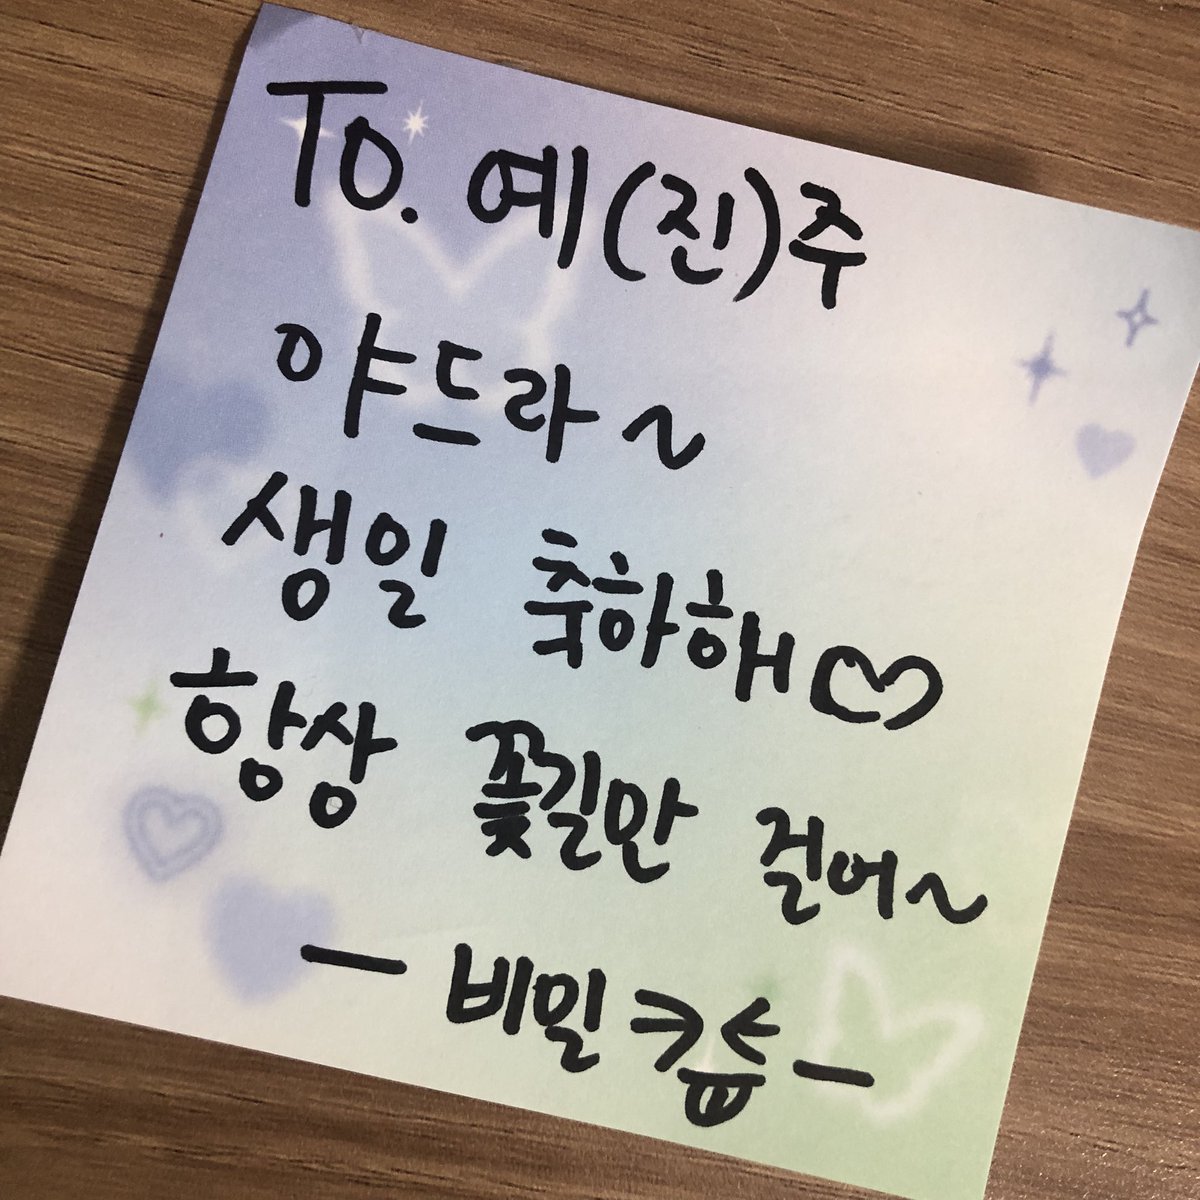 To. 예(진)주
야드라~
생일 축하해♡
항상 꽃길만 걸어~
ー비밀ー